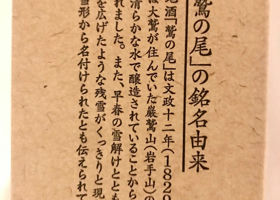 鷲の尾」の銘名由来
地酒「鷲の尾」は文政十二年(1829
は大鷲が住んでいた巌鷲山(岩手山)の
清らかな水で醸造されていることから
れました。また、早春の雪解けととも
を広げたような残雪がくっきりと現
雪形から名付けられたとも伝えられて